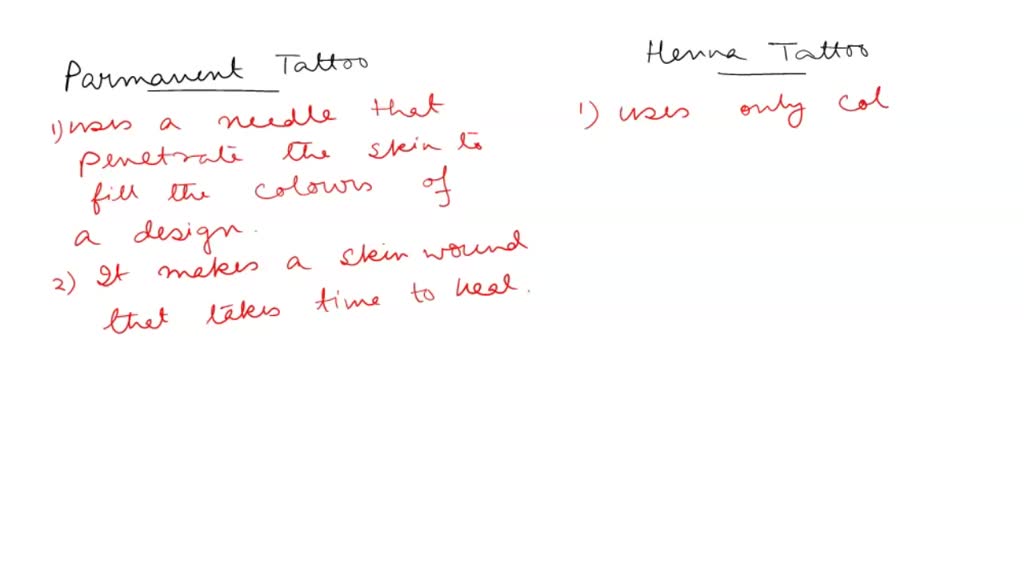 Parmanent Tattoo
1) uses a needle that
penetrate the skin to
fill the colours of
a design.
2) It makes a skin wound
that takes time to heal.
Henna Tattoo
1) uses only col